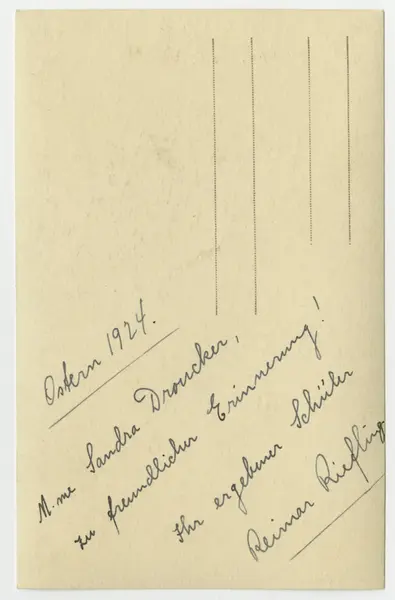 Ostern 1924.
M.me Sandra Droucker,
zu freundlicher Erinnerung!
Ihr ergebener Schüler
Reimar Riefling